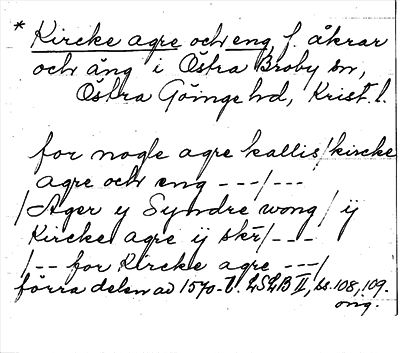 * Kircke agre och eng, f. åkrar
och äng i Östra Broby sn,
Östra Göinge hd, Krist. l.
for nogle agre kallis/kircke
agre och eng ---/---
/Ager y Syndre wong/ ij
Kircke agre ij skr/---
/-- for Kircke agre ---/
förra delen av 1570-t. LSLB II, ss. 108, 109.
orig.